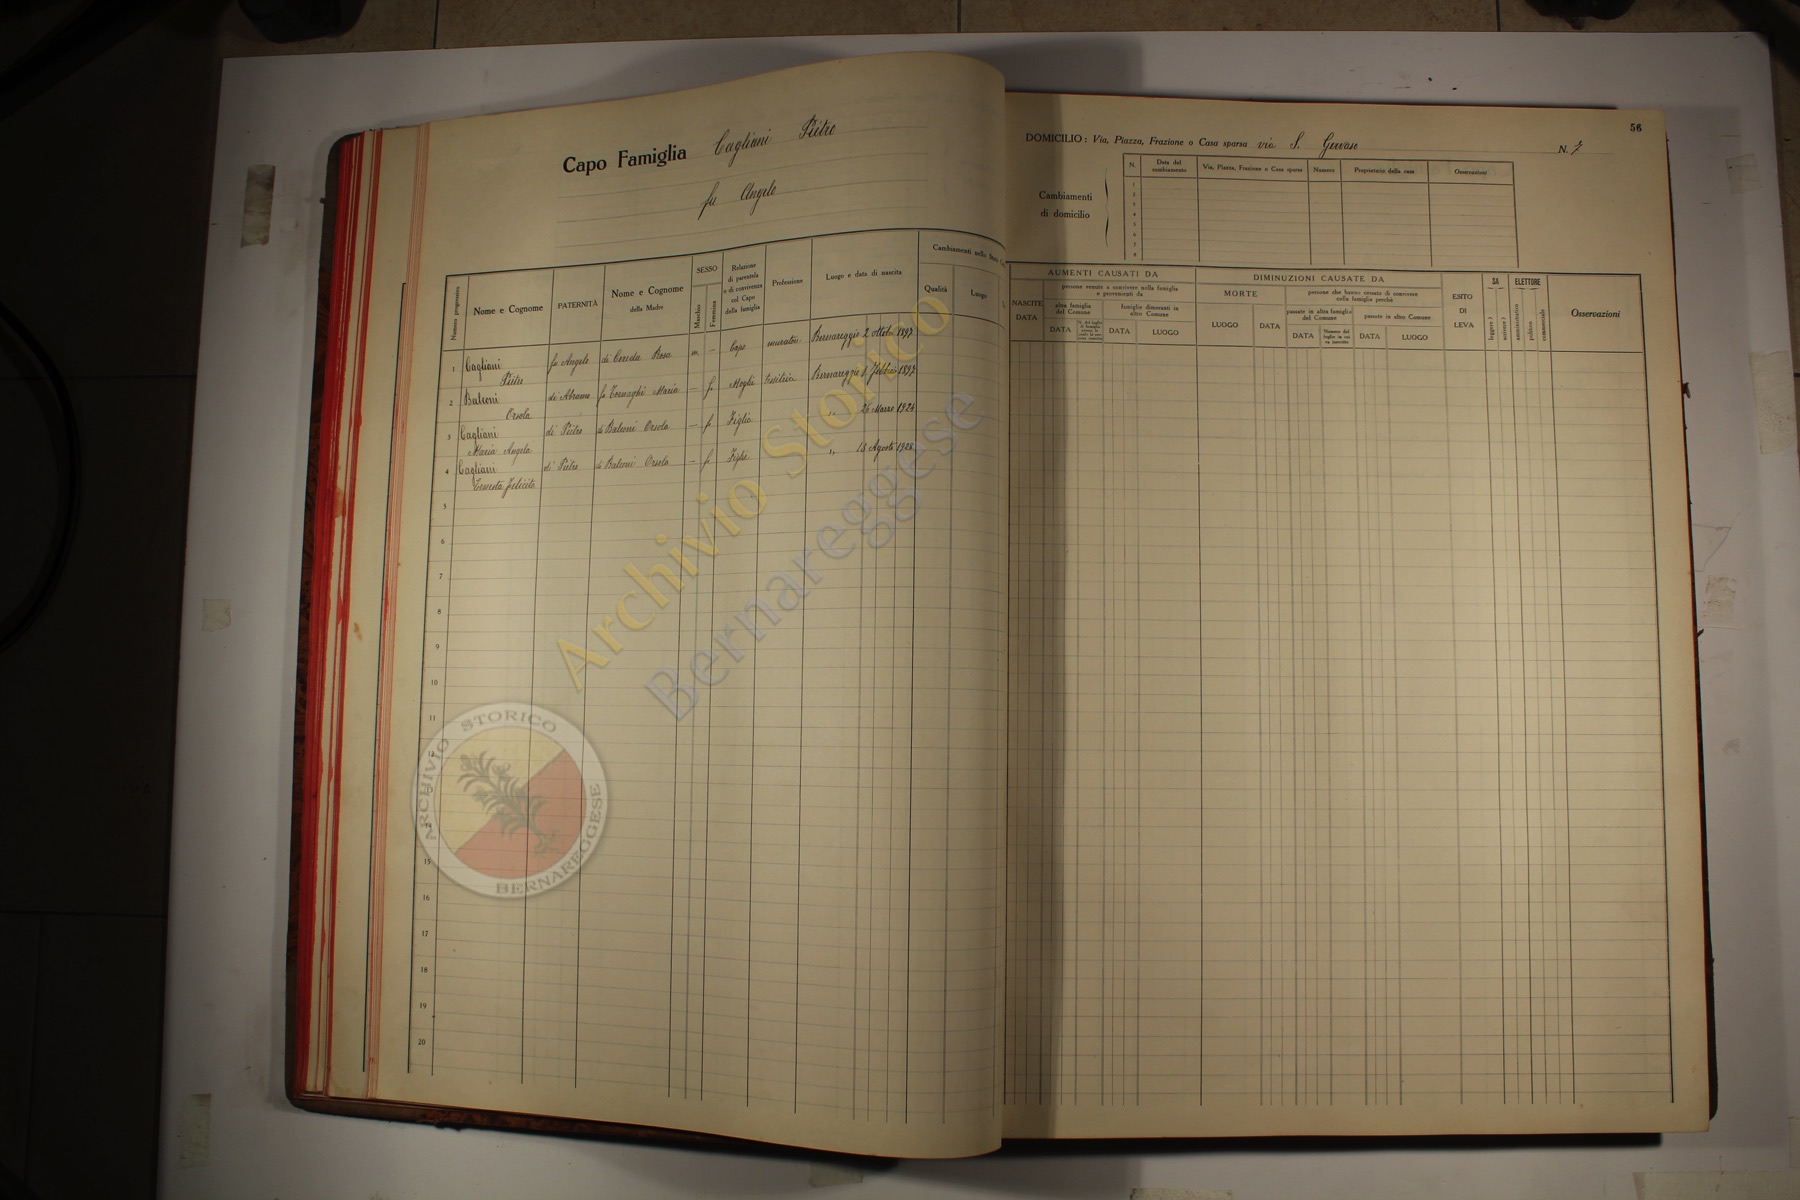 Capo Famiglia Cagliani Pietro
fu Angelo
Numero progressivo
Nome e Cognome
PATERNITÀ
Nome e Cognome
della Madre
SESSO
Maschio
Femmina
Relazione
di parentela
o di convivenza
col Capo
della famiglia
Professione
Luogo e data di nascita
Cambiamenti nello
Qualità
Luogo
1 Cagliani fu Angelo di Cereda Rosa m. – Capo muratore Bernareggio 2 Ottob. 1897
Pietro
2 Balconi di Abramo fu Cornaghi Maria – f. Moglie Bernareggio 1897
Orsola
3 Cagliani di Pietro di Balconi Orsola – f. Figlia „ 26 Marzo 1924
Maria Angela
4 Cagliani di Pietro di Balconi Orsola – f. Figlia „ 18 Agosto 1928
Ernesta Felicita
5
6
7
8
9
10
11
12
15
16
17
18
19
20
56
DOMICILIO: Via, Piazza, Frazione o Casa sparsa via S. Gervaso N. 7
Cambiamenti
di domicilio
N.
Data del
cambiamento
Via, Piazza, Frazione o Casa sparsa
Numero
Proprietario della casa
Osservazioni
1
2
3
4
5
6
7
8
AUMENTI CAUSATI DA
NASCITE
DATA
persone venute a convivere nella famiglia
e provenienti da
altra famiglia
del Comune
DATA
famiglie dimoranti in
altro Comune
DATA
LUOGO
DIMINUZIONI CAUSATE DA
MORTE
LUOGO
DATA
persone che hanno cessato di convivere
nella famiglia perchè
passate in altra famiglia
del Comune
DATA
Numero del
foglio in cui
va inscritto
passate in altro Comune
DATA
LUOGO
ESITO
DI
LEVA
SA
leggere?
scrivere?
ELETTORE
amministrativo
politico
commerciale
Osservazioni
Archivio Storico
Bernareggese
ARCHIVIO STORICO
BERNAREGGESE